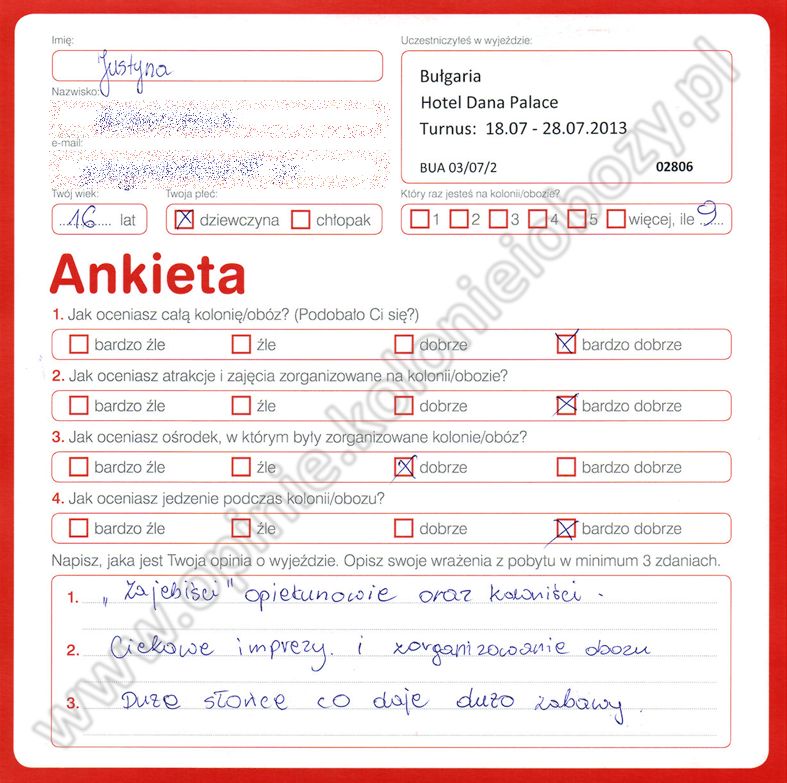 Imię:
Justyna
Uczestniczyłeś w wyjeździe:
Bułgaria
Hotel Dana Palace
Turnus: 18.07 - 28.07.2013
BUA 03/07/2 02806
Nazwisko:
e-mail:
Twój wiek:
16 lat
Twoja płeć:
dziewczyna chłopak
Który raz jesteś na kolonii/obozie?
1 2 3 4 5 więcej, ile 9
Ankieta
1. Jak oceniasz całą kolonię/obóz? (Podobało Ci się?)
bardzo źle źle dobrze bardzo dobrze
2. Jak oceniasz atrakcje i zajęcia zorganizowane na kolonii/obozie?
bardzo źle źle dobrze bardzo dobrze
3. Jak oceniasz ośrodek, w którym były zorganizowane kolonie/obóz?
bardzo źle źle dobrze bardzo dobrze
4. Jak oceniasz jedzenie podczas kolonii/obozu?
bardzo źle źle dobrze bardzo dobrze
Napisz, jaka jest Twoja opinia o wyjeździe. Opisz swoje wrażenia z pobytu w minimum 3 zdaniach.
1. „Zajebiści" opiekunowie oraz koloniści.
2. Ciekawe imprezy. i zorganizowanie obozu
3. Duże słońce co daje dużo zabawy.
www.opinie.kolonieiobozy.pl